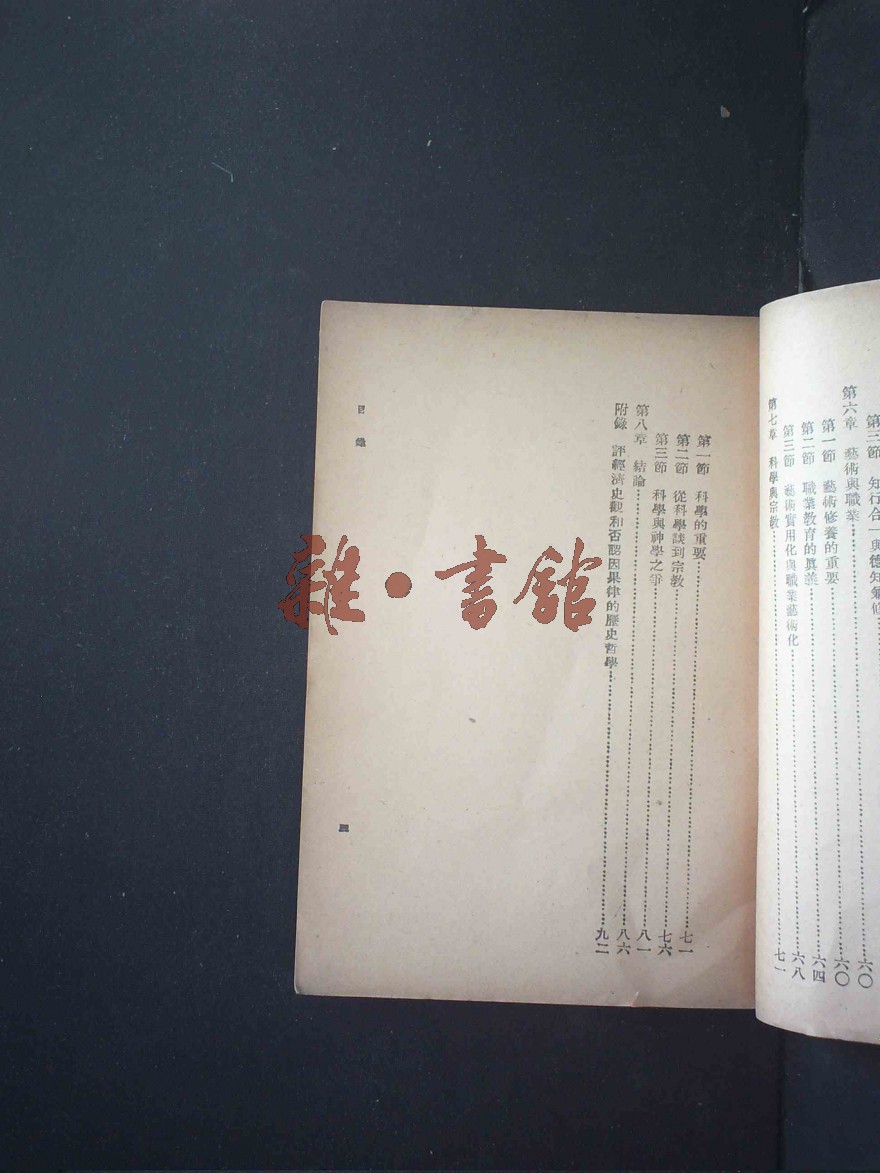 第三節　知行合一與德知兼修
第六章　藝術與職業……六〇
第一節　藝術修養的重要……六〇
第二節　職業教育的眞義……六四
第三節　藝術實用化與職業藝術化……六八
第七章　科學與宗教……七一
第一節　科學的重要……七一
第二節　從科學談到宗教……七六
第三節　科學與神學之爭……八一
第八章　結論……八六
附錄　評經濟史觀和否認因果律的歷史哲學……九二
目錄
雜·書館